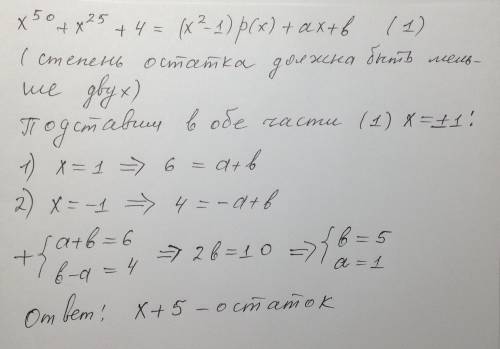 x⁵⁰ + x²⁵ + 4 = (x² - 1) p(x) + ax + b (1)
(степень остатка должна быть мень-
ше двух)
Подставим в обе части (1) x = ±1:
1) x = 1 ⇒ 6 = a + b
2) x = -1 ⇒ 4 = -a + b
+ { a + b = 6 b - a = 4 ⇒ 2b = 10 ⇒ { b = 5 a = 1
Ответ: x + 5 - остаток